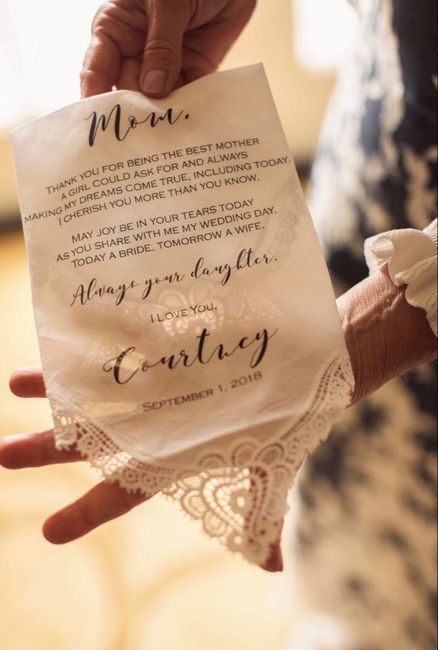 Mom.
THANK YOU FOR BEING THE BEST MOTHER
A GIRL COULD ASK FOR AND ALWAYS
MAKING MY DREAMS COME TRUE, INCLUDING TODAY.
I CHERISH YOU MORE THAN YOU KNOW.
MAY JOY BE IN YOUR TEARS TODAY
AS YOU SHARE WITH ME MY WEDDING DAY.
TODAY A BRIDE, TOMORROW A WIFE.
Always your daughter.
I LOVE YOU,
Courtney
SEPTEMBER 1, 2018